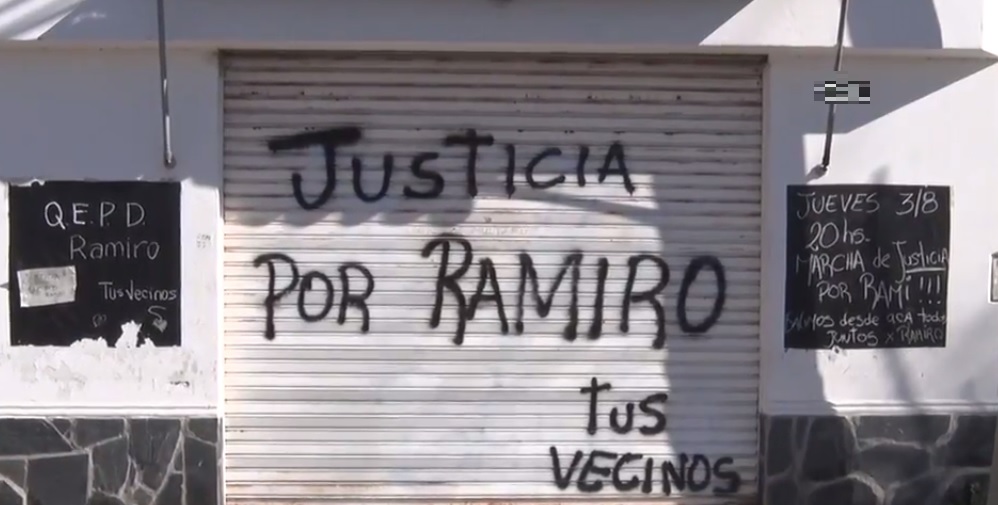 Q.E.P.D.
Ramiro
Tus Vecinos
JUSTICIA
POR RAMIRO
tus
VECINOS
JUEVES 3/8
20 hs.
MARCHA de Justicia
POR RAMI!!!
desde acá todos
Juntos x RAMIRO